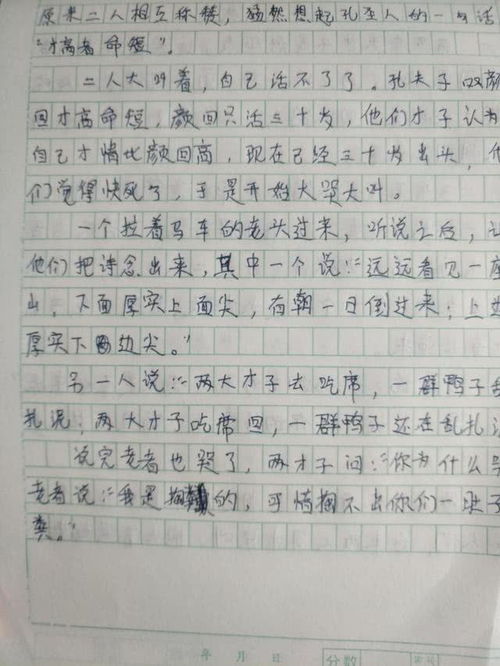 原来二人相互称赞，猛然想起孔圣人的一句话
"才高者命短"。
二人大叫着，自己活不了了。孔夫子叹颜
回才高命短，颜回只活三十岁，他们才子认为
自己才情比颜回高，现在已经三十岁出头，他
们觉得快死了，于是开始大哭大叫。
一个拉着马车的老头过来，听说之后，让
他们把诗念出来，其中一个说："远远看见一座
山，下面厚实上面尖，有朝一日倒过来；上边
厚实下边尖。"
另一人说："两大才子去吃席，一群鸭子乱
扎泥；两大才子吃席回，一群鸭子还在乱扎泥
说完老者也哭了，两才子问："你为什么哭
老者说："我是掏粪的，可惜掏不出你们一肚子
粪。"
年 月 日 分数